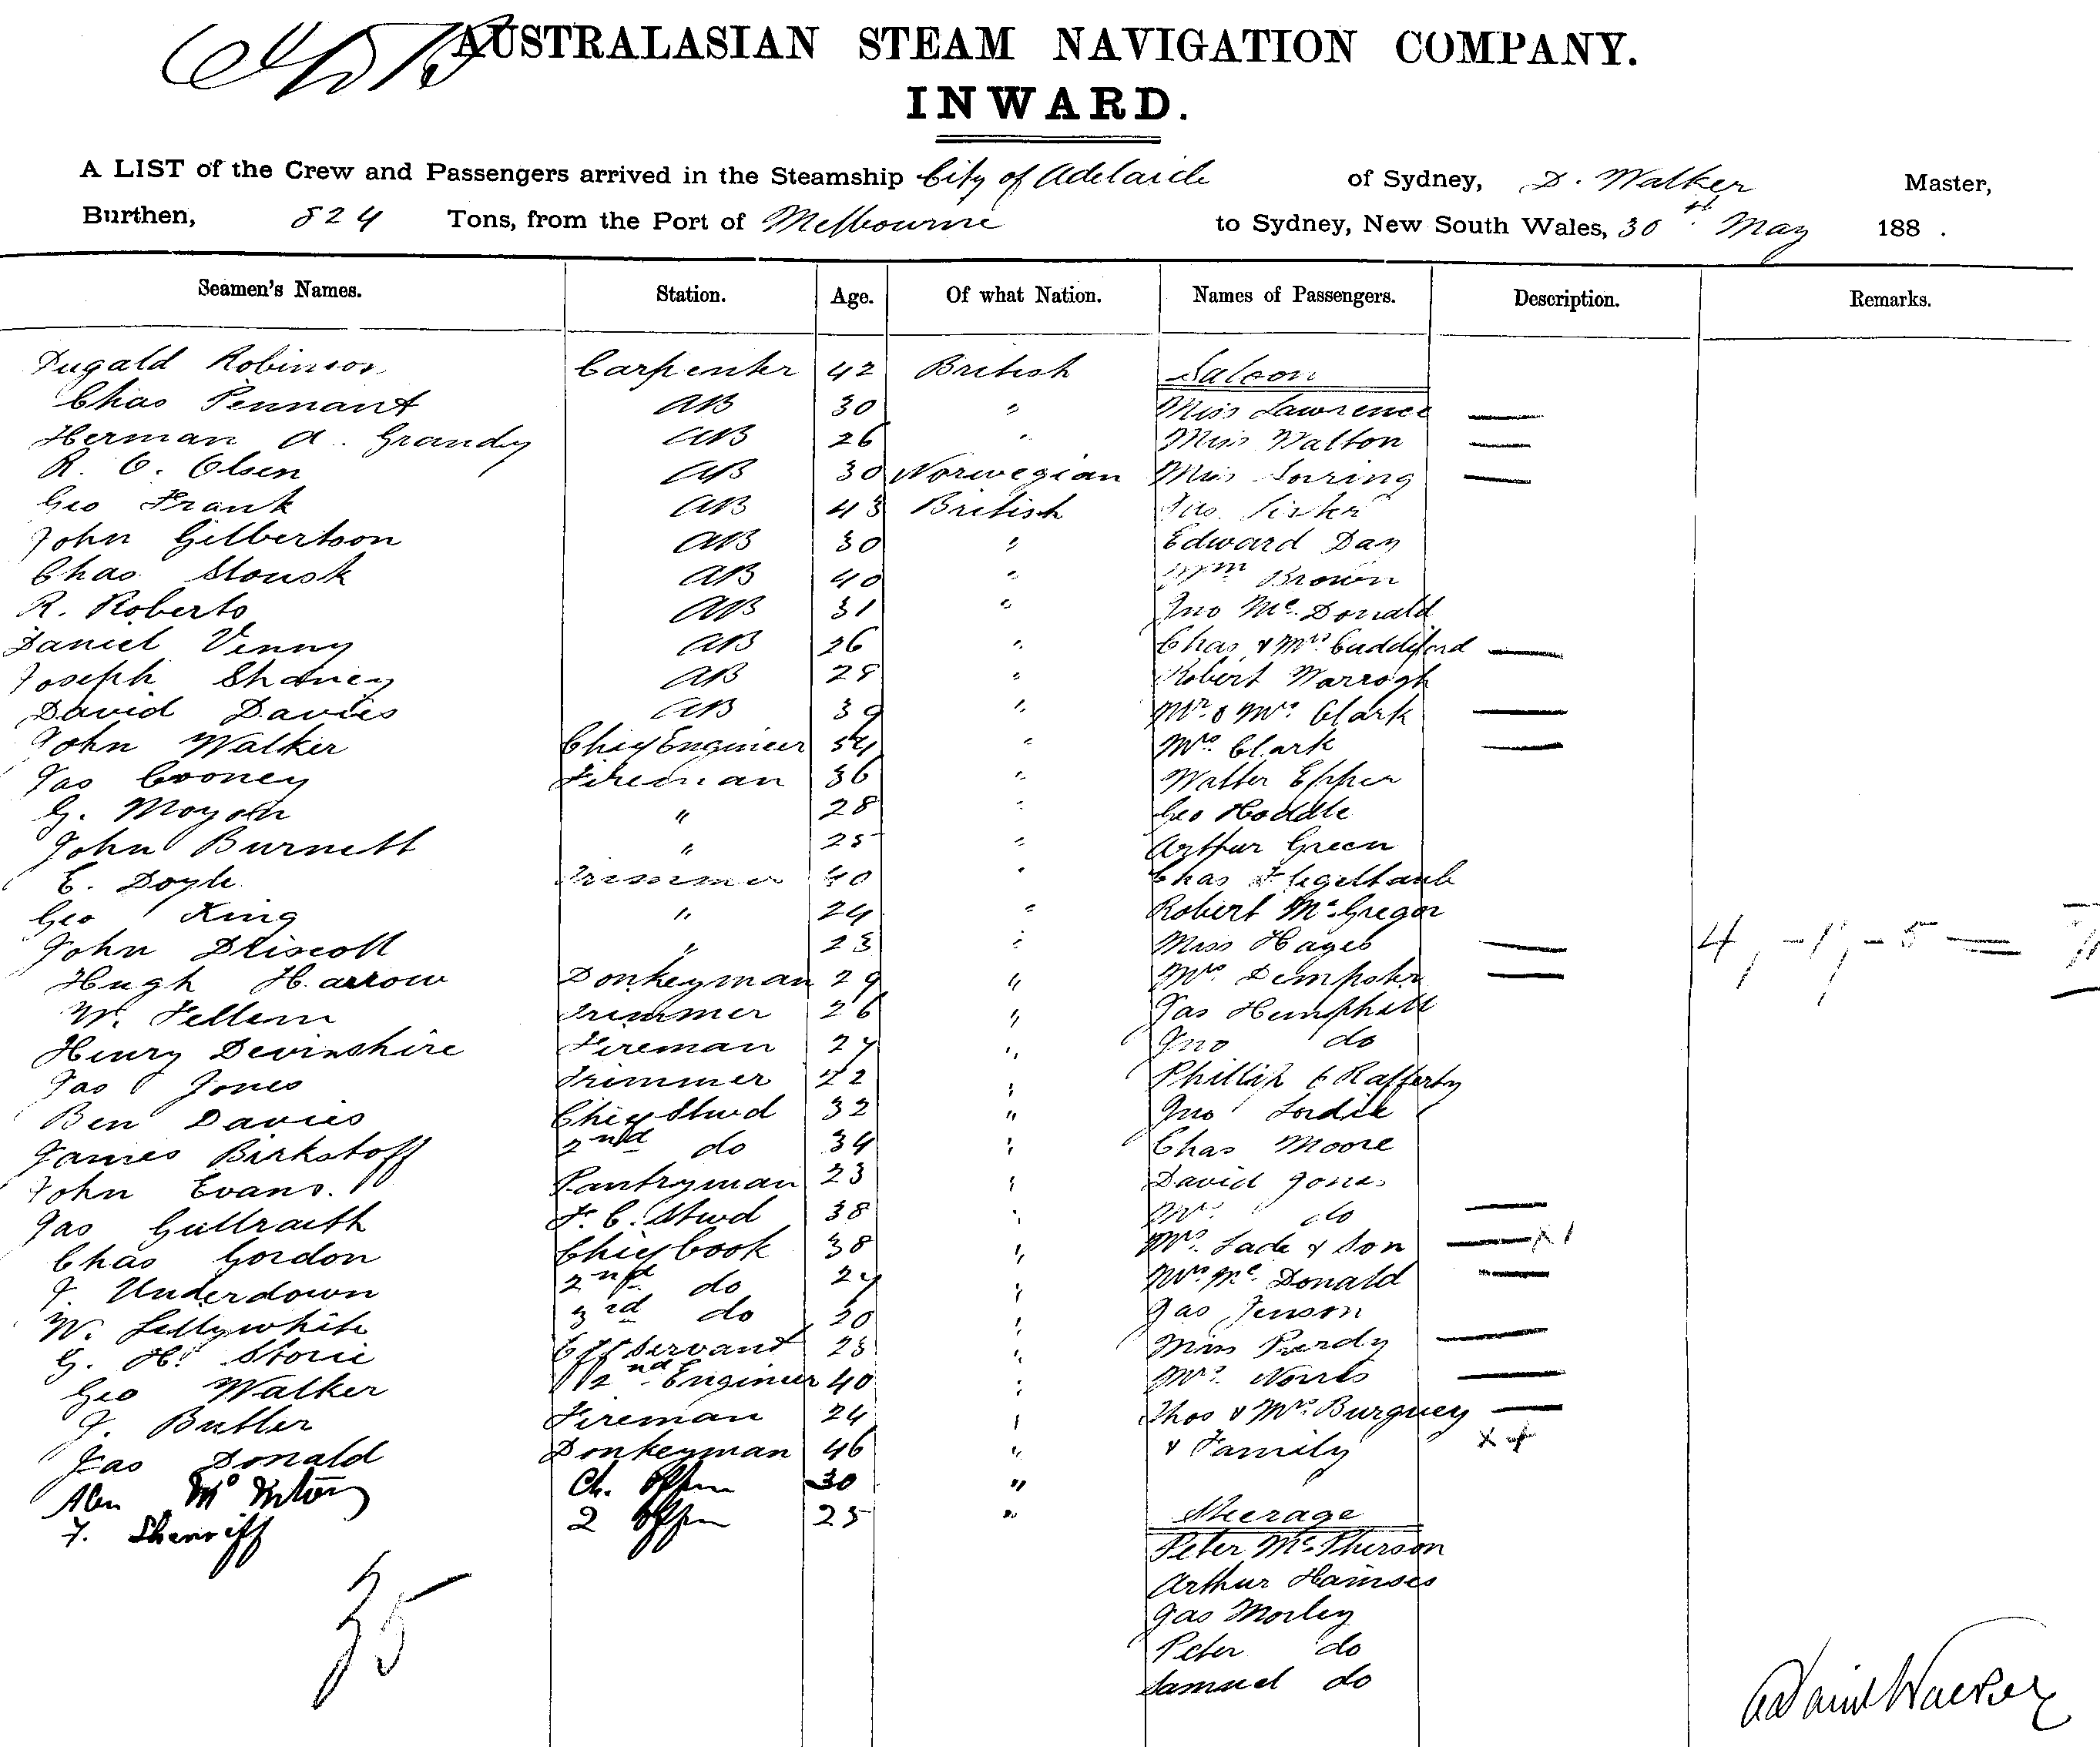 AUSTRALASIAN STEAM NAVIGATION COMPANY.
INWARD.
A LIST of the Crew and Passengers arrived in the Steamship City of Adelaide of Sydney, D. Walker Master,
Burthen, 824 Tons, from the Port of Melbourne to Sydney, New South Wales, 30th May 188 .
Seamen's Names. Station. Age. Of what Nation. Names of Passengers. Description. Remarks.
Dugald Robinson Carpenter 42 British Saloon
Chas Pennant AB 30 " Miss Lawrence —
Herman A. Grandy AB 26 " Miss Walton —
R. O. Olsen AB 30 Norwegian Miss —
Geo Frank AB 43 British
John Gilbertson AB 30 " Edward Day
Chas AB 40 " Wm Brown
R. Roberts AB 31 " Jno McDonald
Daniel Venny AB 26 " Chas & Mrs Cuddiford —
Joseph AB 28 " Robert
David Davies AB 39 " Mr & Mrs Clark —
John Walker Chief Engineer 54 " Mrs Clark —
Jas Cooney Fireman 36 " Walter
G. " 28 " Geo Hoddle
John Burnett " 25 " Arthur Green
E. Doyle Trimmer 40 " Chas
Geo King " 24 " Robert McGregor
John Driscoll " 23 " Miss Hayes — 4, -1, -5 =
Hugh Harrow Donkeyman 29 " Mrs Dempster —
W. Trimmer 26 " Jas Hemphill
Henry Devinshire Fireman 27 " Jno do
Jas Jones Trimmer 22 " Phillip Rafferty
Ben Davies Chief Stwd 32 " Jno
James Birkstoff 2nd do 34 " Chas Moore
John Evans. Pantryman 23 " David Jones
Jas F. C. Stwd 38 " Mrs do —
Chas Gordon Chief Cook 38 " Mrs Lade & Son —
J. Underdown 2nd do 24 " Mrs McDonald —
W. Lillywhite 3rd do 20 " Jas Jenson
G. H. Storie Servant 25 " Miss Purdy —
Geo Walker 2nd Engineer 40 " Mrs Norris —
J. Butler Fireman 24 " Thos & Mrs Burguey —
Jas Donald Donkeyman 46 " & Family
Alex Ch. Offr 30 "
F. Sherriff 2 Offr 25 " Steerage
Peter McPherson
Arthur
Jas Morley
Peter do
Samuel do
35